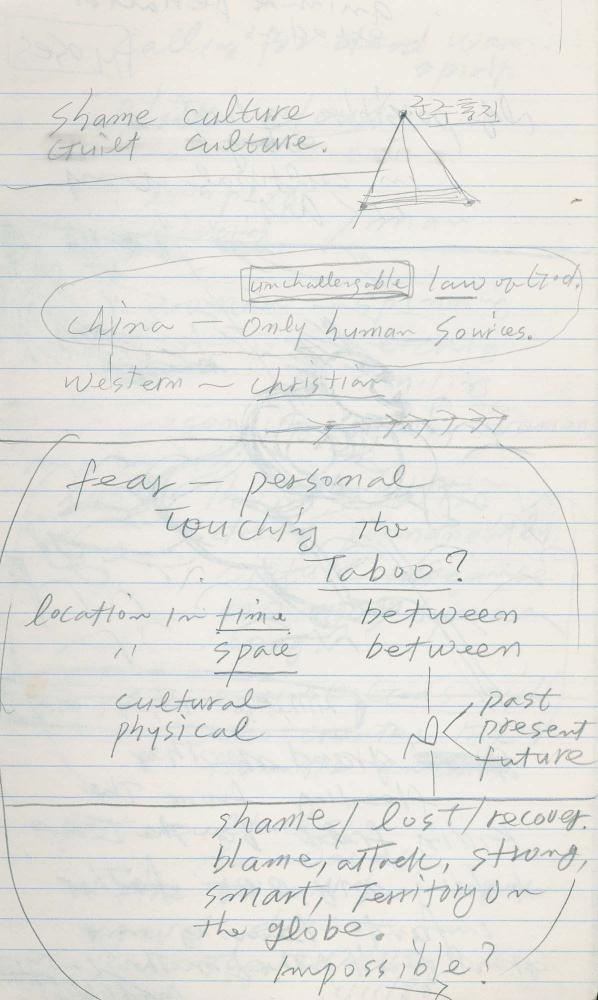 shame culture
Guilt culture.
unchallengable law of God.
China — Only human Sources.
Western — christian
fear — personal
Touching the
Taboo?
location in time between
" space between
cultural
physical
past
present
future
shame / lost / recover.
blame, attack, strong,
smart, Territory on
the globe.
Impossible?